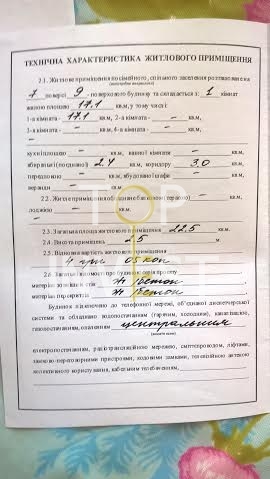 ТЕХНІЧНА ХАРАКТЕРИСТИКА ЖИТЛОВОГО ПРИМІЩЕННЯ
2.1. Житлове приміщення посімейного, спільного заселення розташоване на
7 поверсі 9 - поверхового будинку та складається з: 1 кімнат
жилою площею 17,1 кв.м, у тому числі:
1-а кімната - 17,1 кв.м, 2-а кімната - – кв.м,
3-а кімната - – кв.м, 4-а кімната - – кв.м,
–
кухні площею – кв.м, ванної кімнати – кв.м,
вбиральні (поєднаної) 2,4 кв.м, коридору 3,0 кв.м,
передпокою – кв.м, вбудовані шафи – кв.м,
веранди – кв.м.
2.2. Житлове приміщення обладнане балконом (терасою) – кв.м,
лоджією – кв.м.
–
2.3. Загальна площа житлового приміщення 22,5 кв.м.
2.4. Висота приміщень 2,5 м.
2.5. Відновна вартість житлового приміщення
4 грн. 05 коп.
2.6. Загальні відомості про будинок
матеріал зовнішніх стін ж/бетон
матеріал перекриття ж/бетон
Будинок підключено до телефонної мережі, об'єднаної диспетчерської
системи та обладнано водопостачанням (гарячим, холодним), каналізацією,
газопостачанням, опаленням центральним
електропостачанням, радіотрансляційною мережею, сміттєпроводом, ліфтами,
замково-переговорними пристроями, кодовими замками, телевізійною антеною
колективного користування, кабельним телебаченням,
TOP